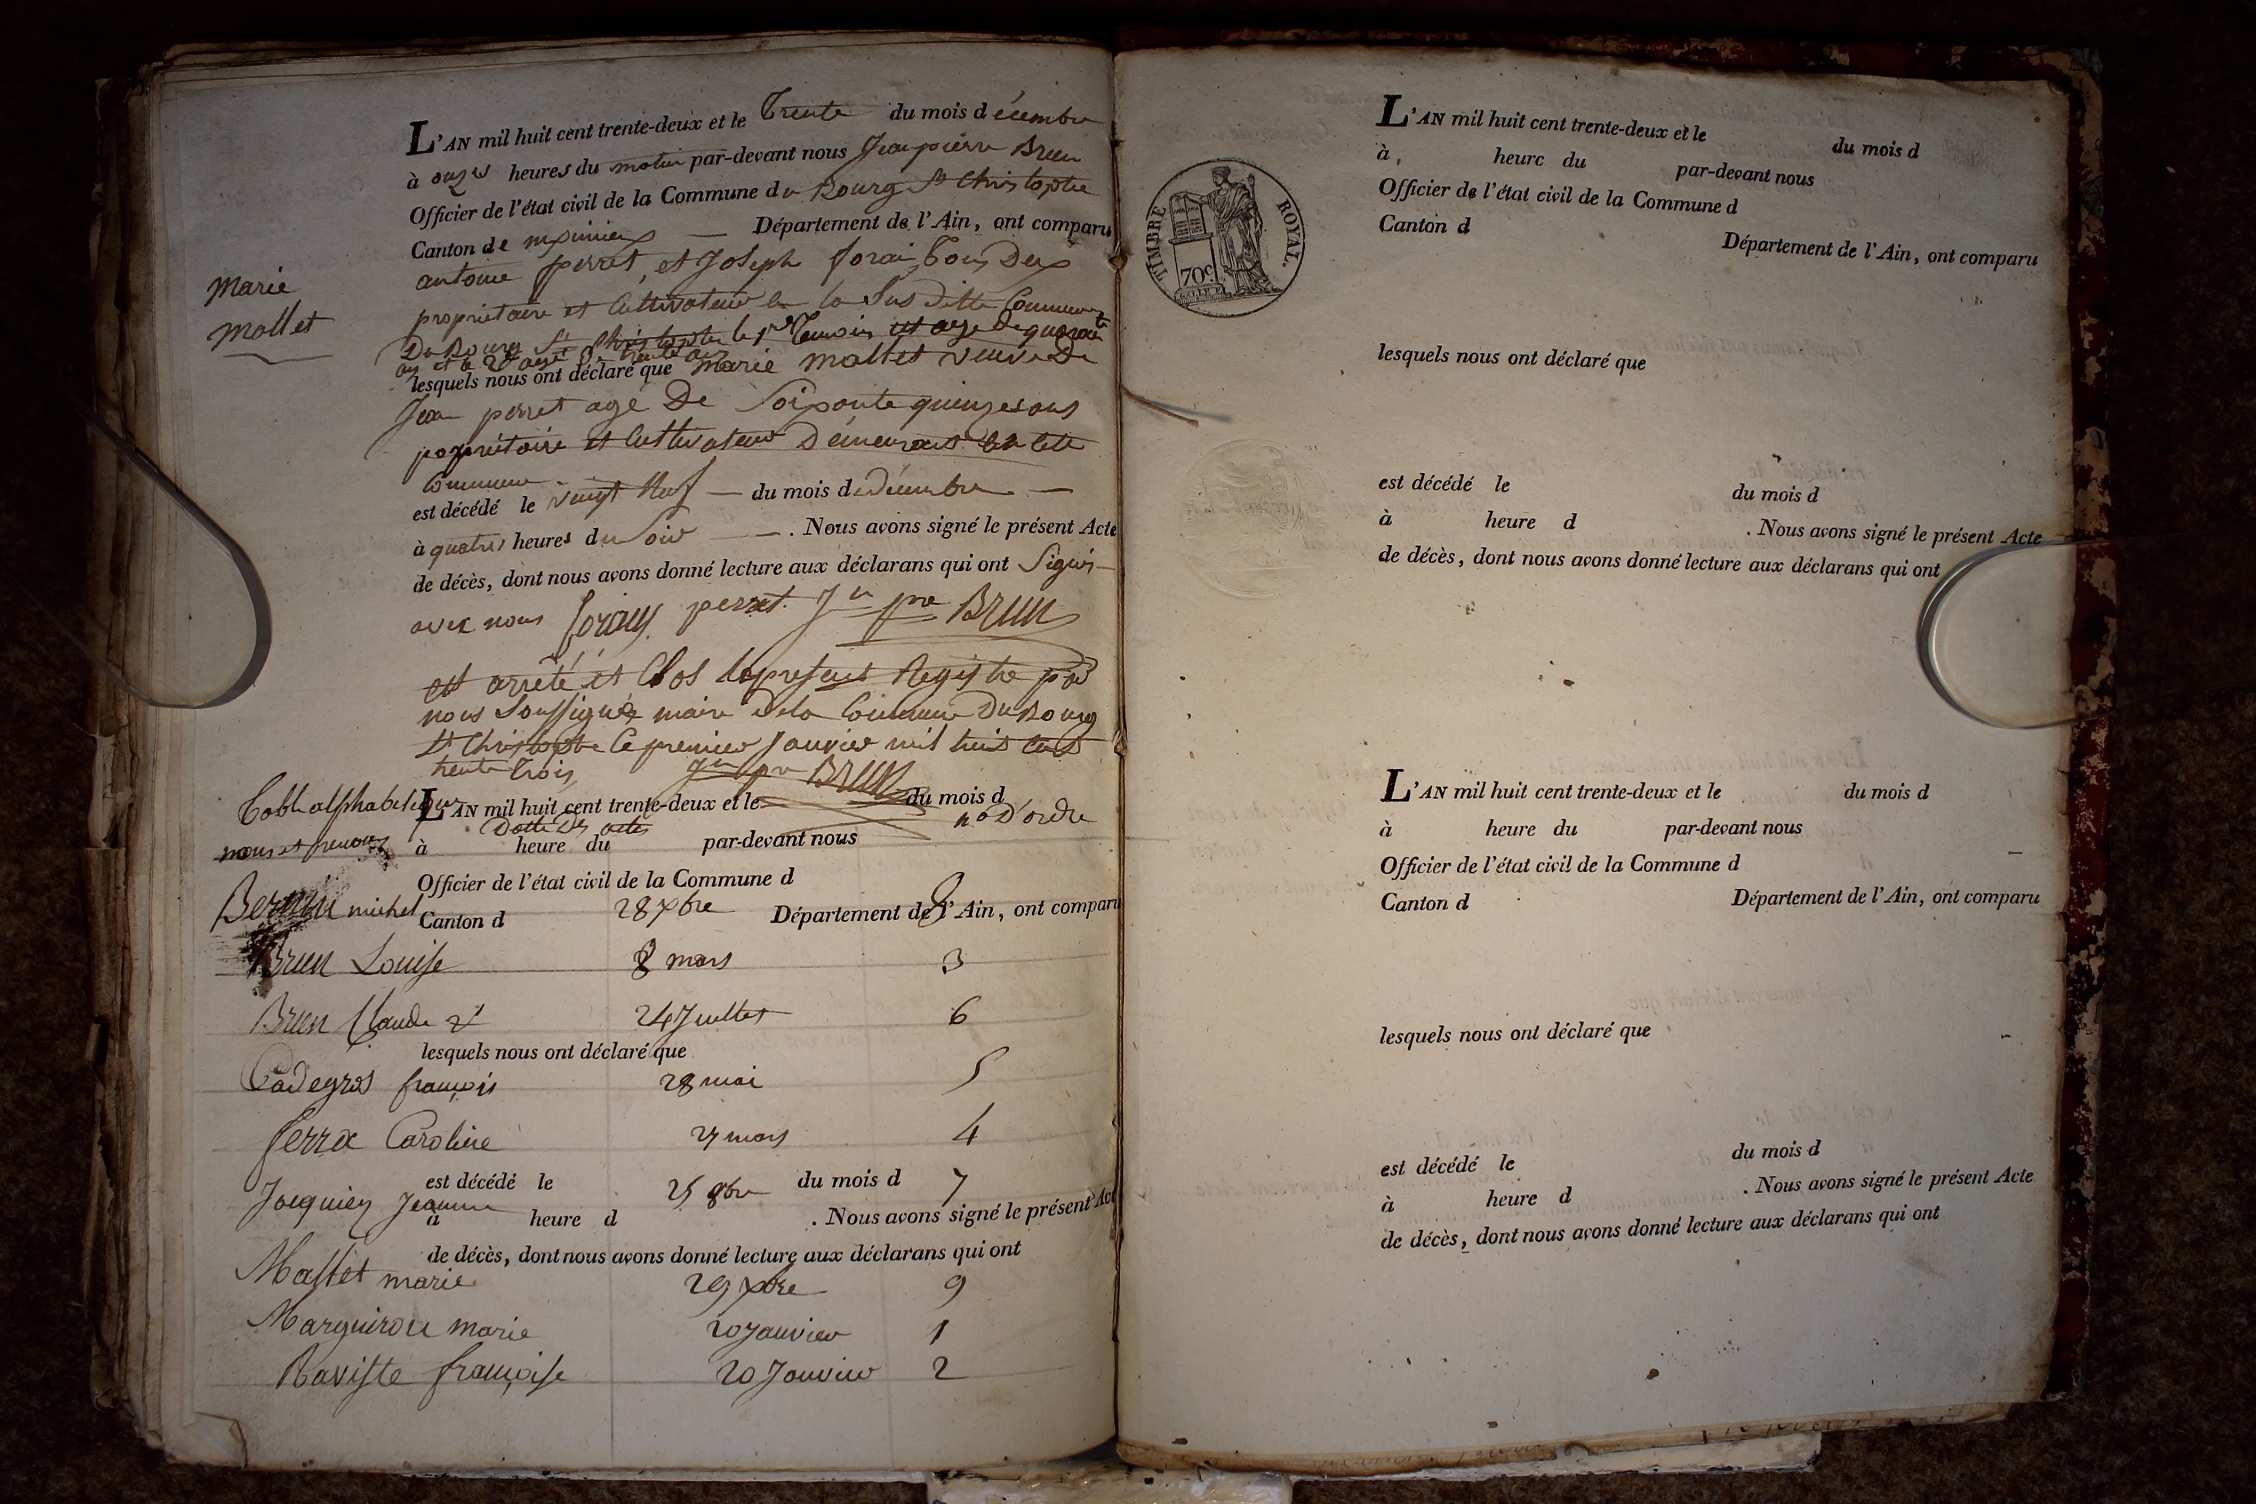 L'AN mil huit cent trente-deux et le Trente du mois d écembre
à onzes heures du matin par-devant nous Jean pierre Brun
Officier de l'état civil de la Commune du Bourg St Christophe
Canton de mximieux — Département de l'Ain, ont comparu
antoine perret et Joseph forai Tous Deux
propriétaire et Cultivateur en la Sus ditte Commune
Du Bourg St Christophe le 1er Temoin est age De quarante
ans et le 2d agé de trente ans
Marie
mollet
lesquels nous ont déclaré que marie mollet veuve De
Jean perret agé De Soixante quinzes ans
popriétaire et Cultivateur Démeurant En cette
Commune
est décédé le vengt Neuf — du mois de décembre —
à quatres heures du Soir —. Nous avons signé le présent Acte
de décès, dont nous avons donné lecture aux déclarans qui ont Signés
avec nous foray perret Jn pre BRUN
est arrêté et Clos le présent Registre par
nous Soussignéz maire de la Commune Du Bourg
St Christophe Ce premier Janvier mil huit cent
trente trois Jn pre BRUN
Table alphabetique
L'AN mil huit cent trente-deux et le du mois d
noms et prenoms Datte Des actes no D'ordre
à heure du par-devant nous
Officier de l'état civil de la Commune d
michel 28 Xbre 8
Canton d Département de l'Ain, ont comparu
Brun Louise 8 mars 3
Brun Claude 24 Juillet 6
lesquels nous ont déclaré que
Cadegros françois 28 mai 5
Caroline 27 mars 4
est décédé le du mois d
Jacquiez Jeanne 25 8bre 7
à heure d . Nous avons signé le présent Acte
de décès, dont nous avons donné lecture aux déclarans qui ont
Mollet marie 29 Xbre 9
Marguiron marie 20 Janvier 1
Raviste françoise 20 Janvier 2
TIMBRE ROYAL.
70c
L'AN mil huit cent trente-deux et le du mois d
à heure du par-devant nous
Officier de l'état civil de la Commune d
Canton d Département de l'Ain, ont comparu
lesquels nous ont déclaré que
est décédé le du mois d
à heure d . Nous avons signé le présent Acte
de décès, dont nous avons donné lecture aux déclarans qui ont
L'AN mil huit cent trente-deux et le du mois d
à heure du par-devant nous
Officier de l'état civil de la Commune d
Canton d Département de l'Ain, ont comparu
lesquels nous ont déclaré que
est décédé le du mois d
à heure d . Nous avons signé le présent Acte
de décès, dont nous avons donné lecture aux déclarans qui ont